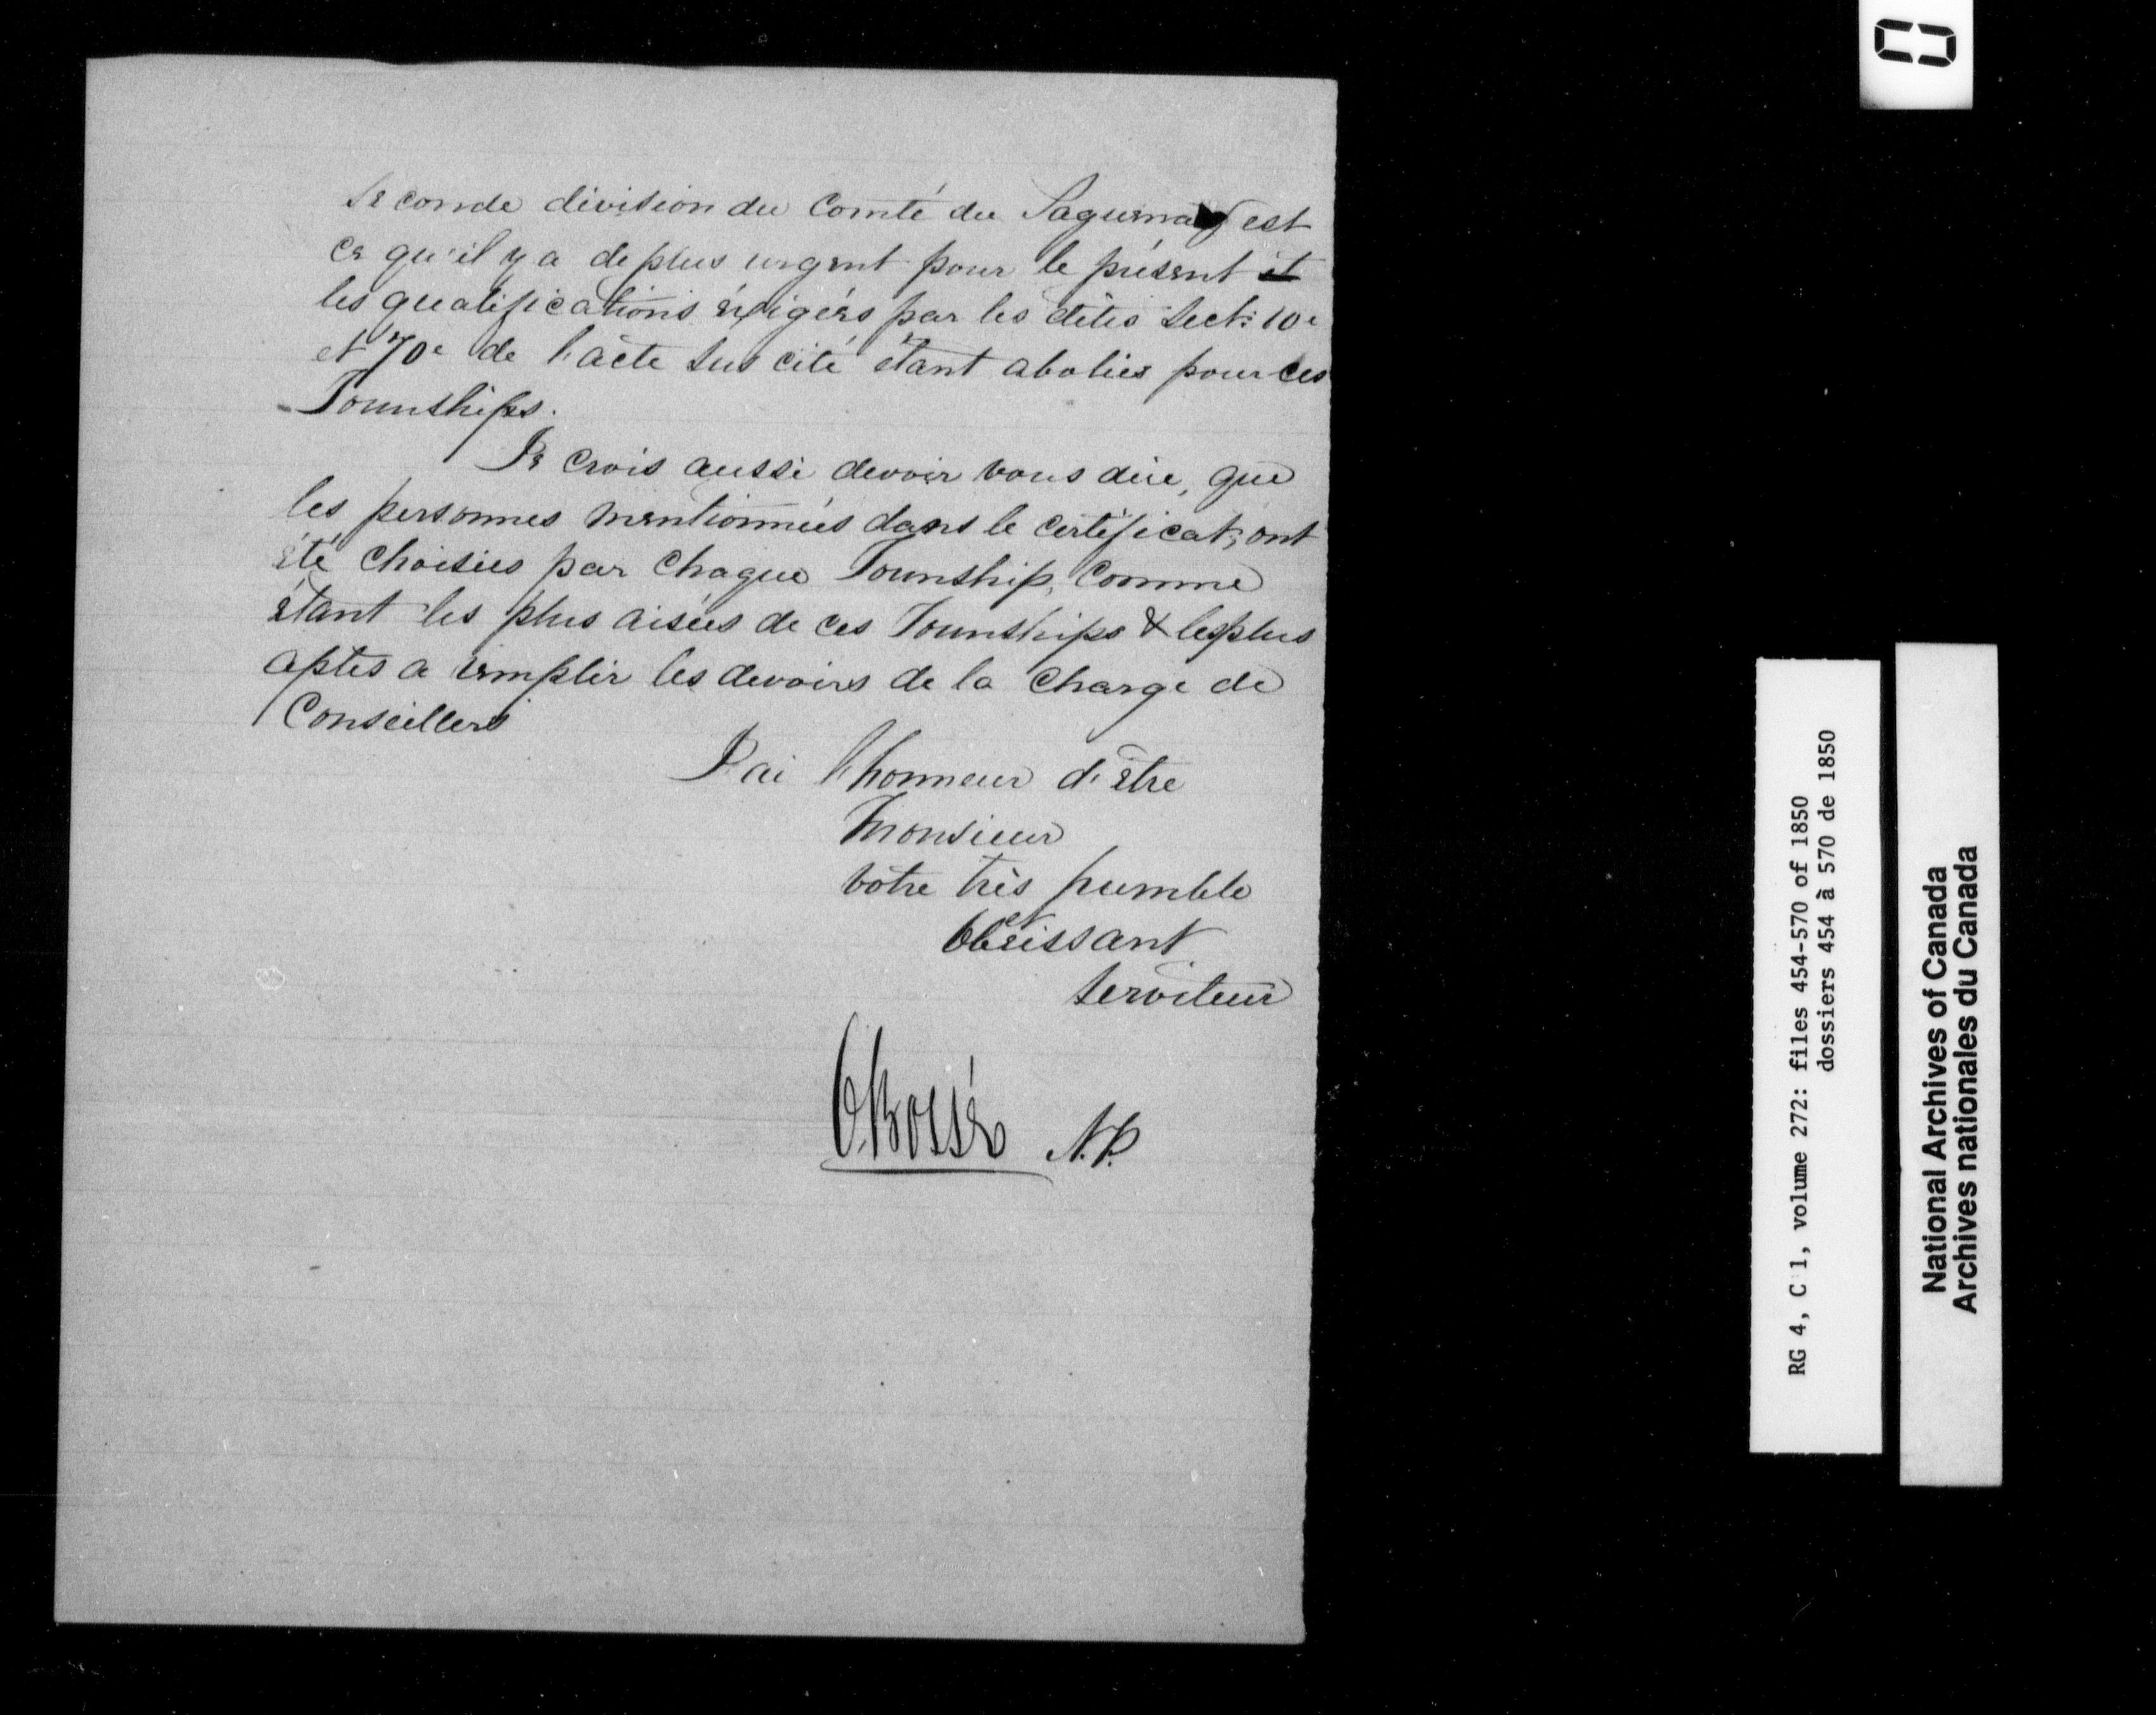 seconde division du Comté du Saguenay est
ce qu'il y a de plus urgent pour le présent et
les qualifications éxigées par les dites Sect: 10e
et 70e de l'acte sus cité étant abolies pour ces
Townships.
Je crois aussi devoir vous dire, que
les personnes mentionnées dans le certificat, ont
été choisies par chaque Township, comme
étant les plus aisées de ces Townships & les plus
aptes a remplir les devoirs de la charge de
Conseillers
J'ai l'honneur d'être
Monsieur
votre très humble
et
Obéissant
Serviteur
O. Bossé N.P.
RG 4, C 1, volume 272: files 454-570 of 1850
dossiers 454 à 570 de 1850
National Archives of Canada
Archives nationales du Canada